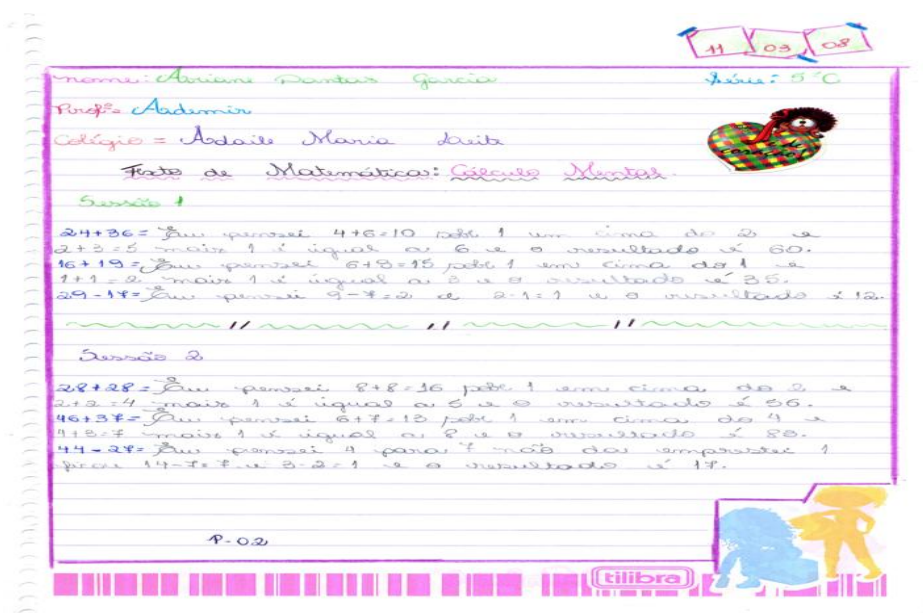 11 03 08
nome: Ariane Dantas Garcia Série: 5ªC
Profº= Aademir
Colégio = Adaile Maria Leite
Texto de Matemática: Cálculo Mental.
Sessão 1
24+36= Eu pensei 4+6=10 sobe 1 em cima do 2 e
2+3=5 mais 1 é igual a 6 e o resultado é 60.
16+19= Eu pensei 6+9=15 sobe 1 em cima do 1 e
1+1=2 mais 1 é igual a 3 e o resultado é 35.
29-17= Eu pensei 9-7=2 e 2-1=1 e o resultado é 12.
Sessão 2
28+28= Eu pensei 8+8=16 sobe 1 em cima do 2 e
2+2=4 mais 1 é igual a 5 e o resultado é 56.
46+37= Eu pensei 6+7=13 sobe 1 em cima do 4 e
4+3=7 mais 1 é igual a 8 e o resultado é 83.
44-27= Eu pensei 4 para 7 não dá emprestei 1
ficou 14-7=7 e 3-2=1 e o resultado é 17.
P-02
tilibra